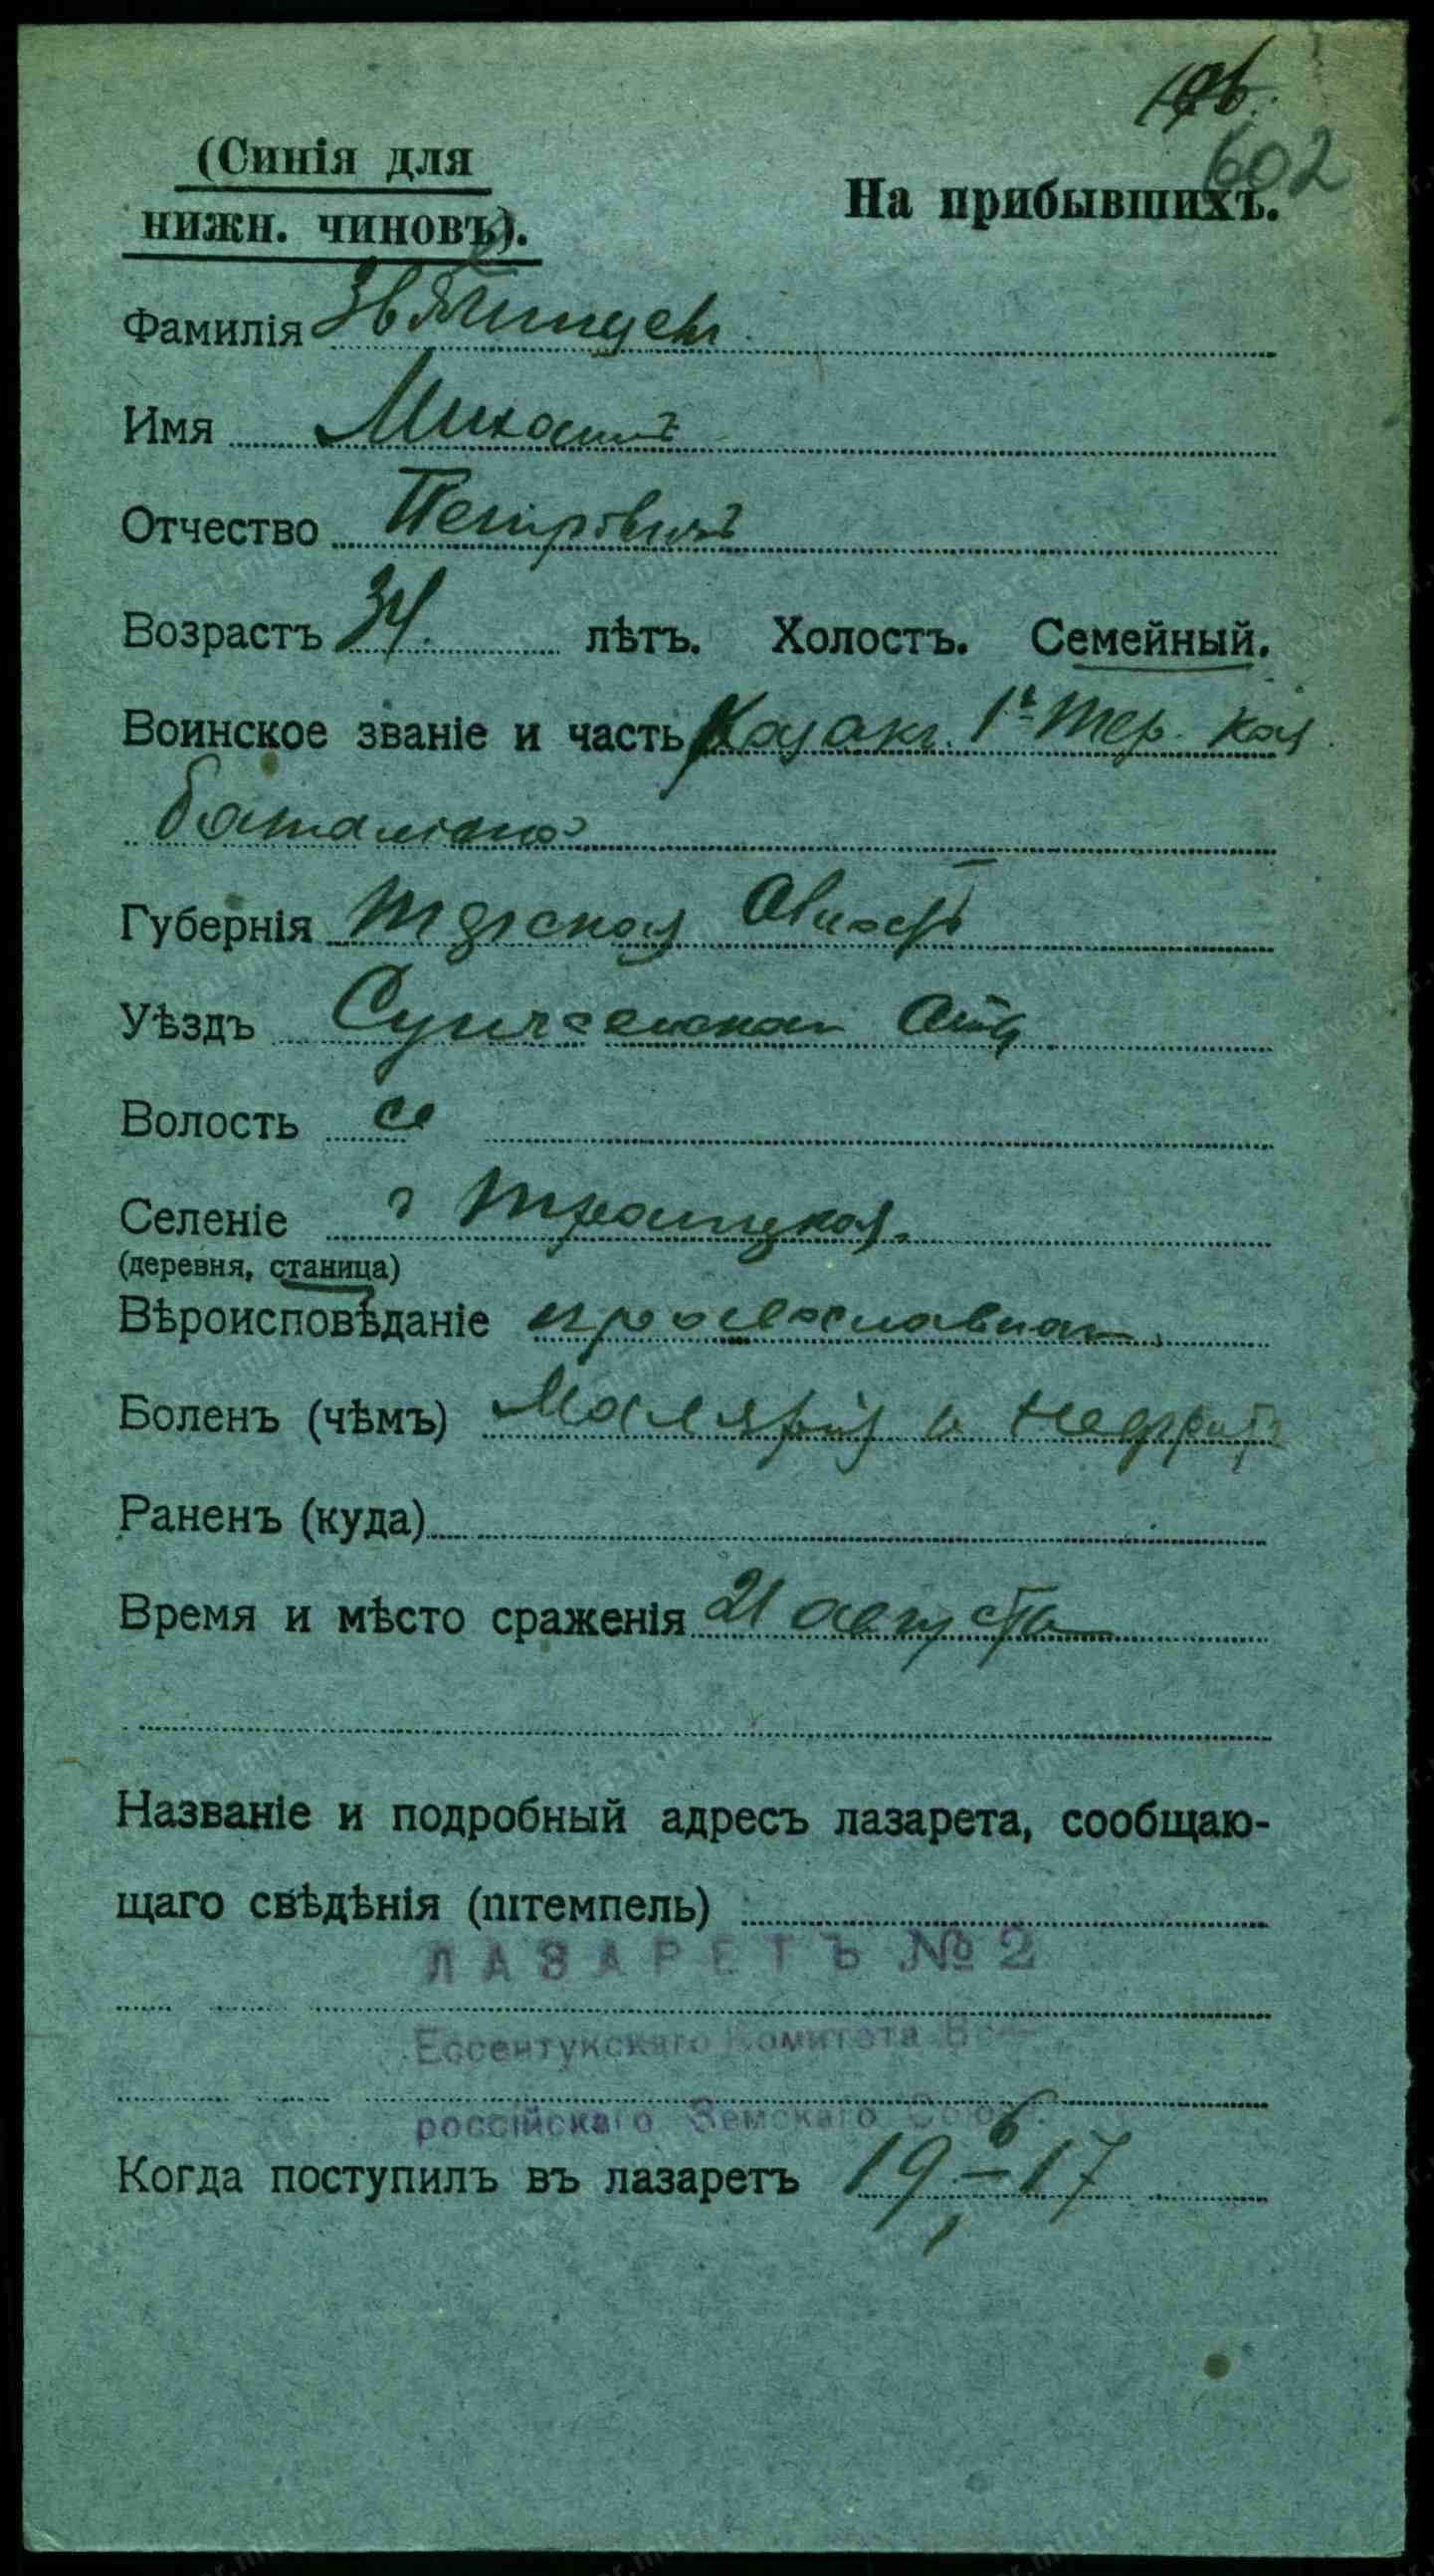 602
(Синія для
нижн. чиновъ).
На прибывшихъ.
Фамилія
Имя Михаилъ
Отчество Петровичъ
Возрастъ 34 лѣтъ. Холостъ. Семейный.
Воинское званіе и часть Козакъ 1й Тер. Каз
баталіонъ
Губернія Терская Область
Уѣздъ
Волость
Селеніе Троицкая
(деревня, станица)
Вѣроисповѣданіе православнаг
Боленъ (чѣмъ) Малярія и Нефритъ
Раненъ (куда)
Время и мѣсто сраженія 21 августа
Названіе и подробный адресъ лазарета, сообщаю-
щаго свѣдѣнія (штемпель)
ЛАЗАРЕТЪ № 2
Ессентукскаго Комитета Все-
россійскаго Земскаго Союза.
Когда поступилъ въ лазаретъ 19 6 17